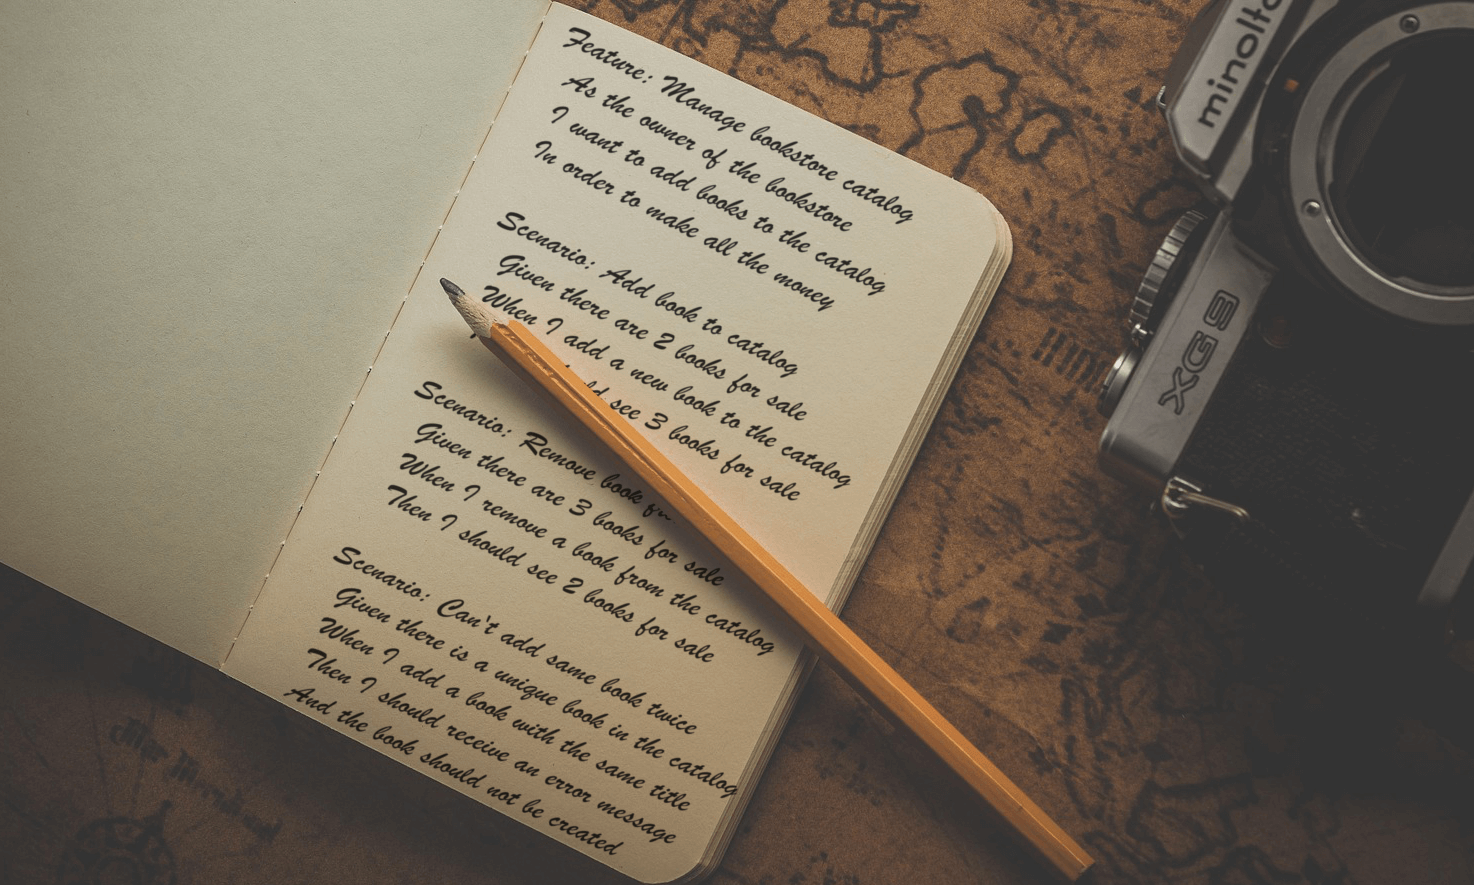 Feature: Manage bookstore catalog
As the owner of the bookstore
I want to add books to the catalog
In order to make all the money
Scenario: Add book to catalog
Given there are 2 books for sale
When I add a new book to the catalog
see 3 books for sale
Scenario: Remove book
Given there are 3 books for sale
When I remove a book from the catalog
Then I should see 2 books for sale
Scenario: Can't add same book twice
Given there is a unique book in the catalog
When I add a book with the same title
Then I should receive an error message
And the book should not be created
minolta
XG9